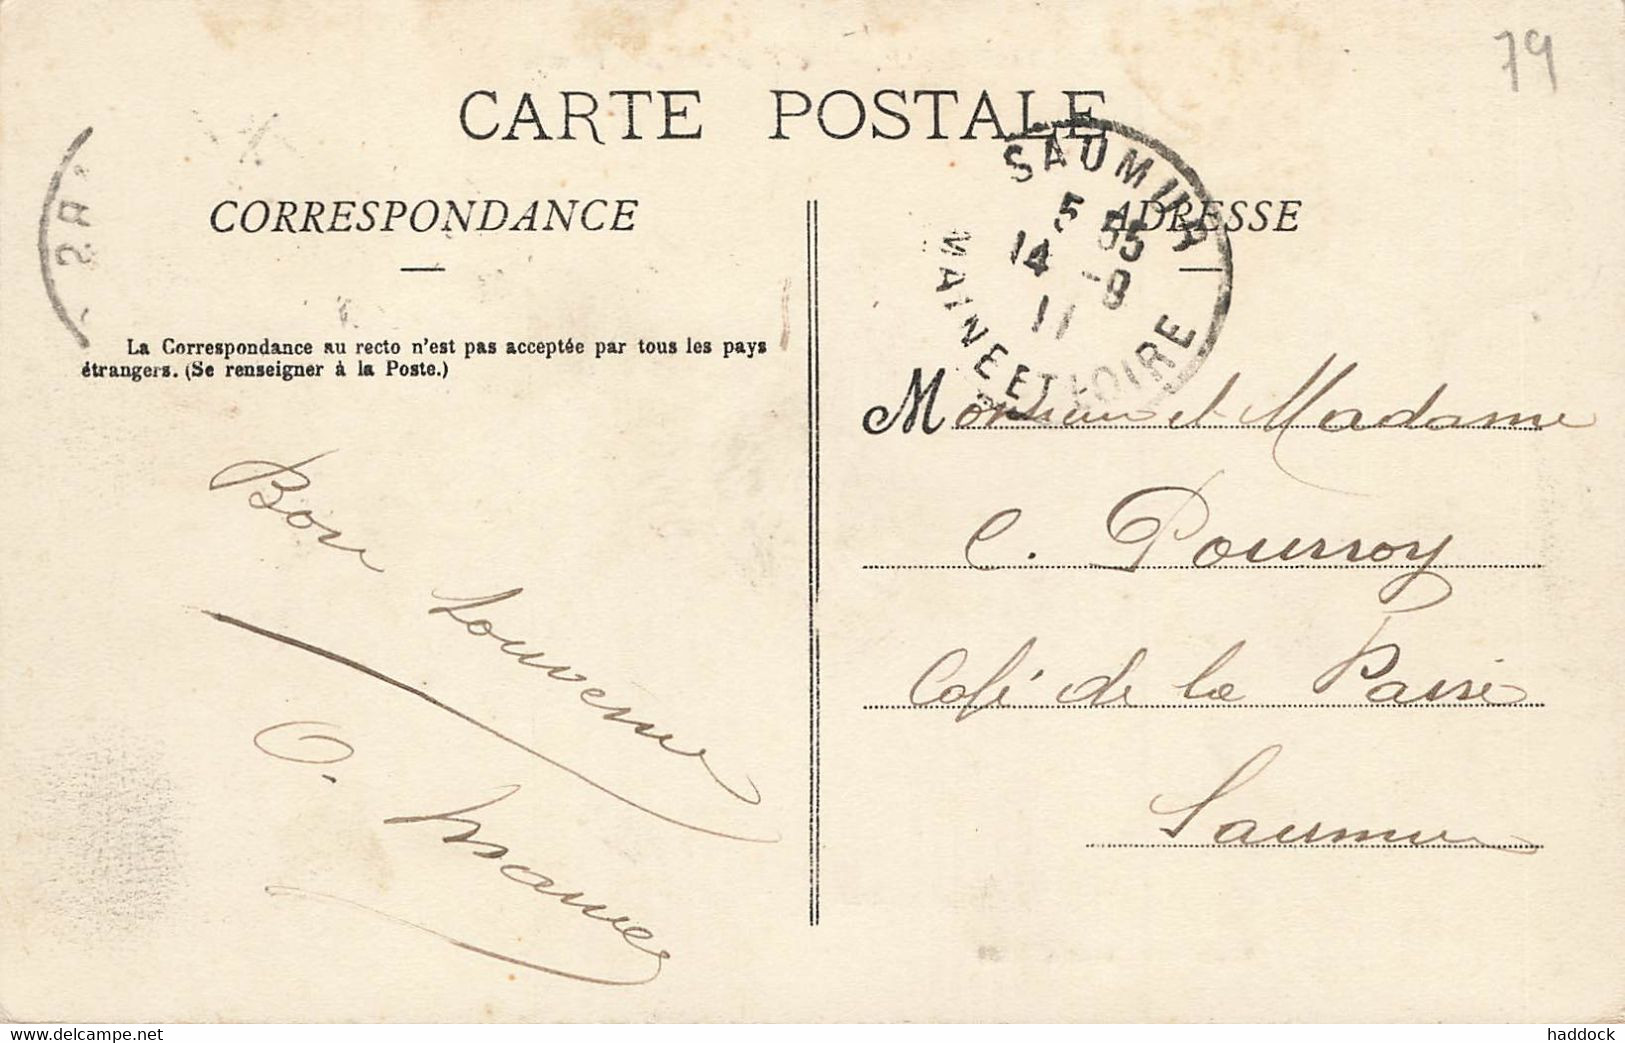 79
CARTE POSTALE
SAUMUR
5 55
14 -8
11
MAINE ET LOIRE
CORRESPONDANCE
ADRESSE
La Correspondance au recto n'est pas acceptée par tous les pays
étrangers. (Se renseigner à la Poste.)
Monsieur et Madame
C. Pourroy
Café de la Paix
Saumur
Bon
Souvenir
O.
www.delcampe.net
haddock